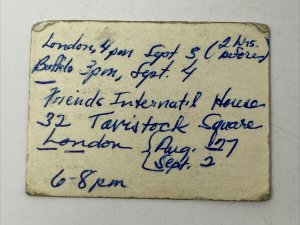 London, 4 pm Sept 3, (2 hrs. before)
Buffalo 3pm, Sept. 4
Friends Internat'l House
32 Tavistock Square
London { Aug. 27
Sept. 2
6-8pm